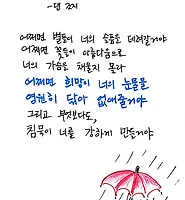 -댄 조지
어쩌면 별들이 너의 슬픔을 데려갈거야
어쩌면 꽃들이 아름다움으로
너의 가슴을 채울지 몰라
어쩌면 희망이 너의 눈물을
영원히 닦아 없애줄거야
그리고 무엇보다도,
침묵이 너를 강하게 만들거야